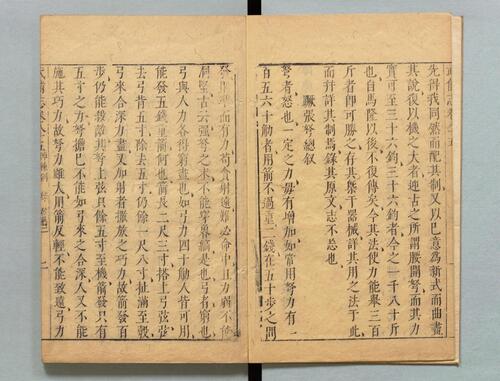 先得我同然而配其制又以己意為新式而曲盡
其說復以機之大者迎古之所謂腰開弩而其力
實可至三十六鈞三十六鈞者今之一千八十斤
也自馬隆以後不復傳矣今其法使力能舉三百
斤者即可勝之存其槩于器械詳其用之法于此
而并詳其制焉錄其原文志不忘也
蹶張弩總敘
弩者怒也一定之力毋有增加如常用弩力有一
百五六十觔者用箭不過重二錢在五十步之間
發而
有力
射遠難必命中且力弱不能
古云强弩之末不能穿魯縞是也弓者窮也
弓與人力各得窮盡也如弓力四十觔人皆可用
箭發五錢重箭何也箭長二尺三寸搭上弓弦弦
去弓背五寸除去五寸仍餘一尺八寸扯滿至彀
弓來合深力盡又加射者撒放之巧力故箭發百
步仍能殺敵其弩上弦只餘五寸至機箭發只有
五寸之力弩擔巴不能如弓來之合深人又不能
施其巧力故弩力雖大用箭反輕不能致遠弓力